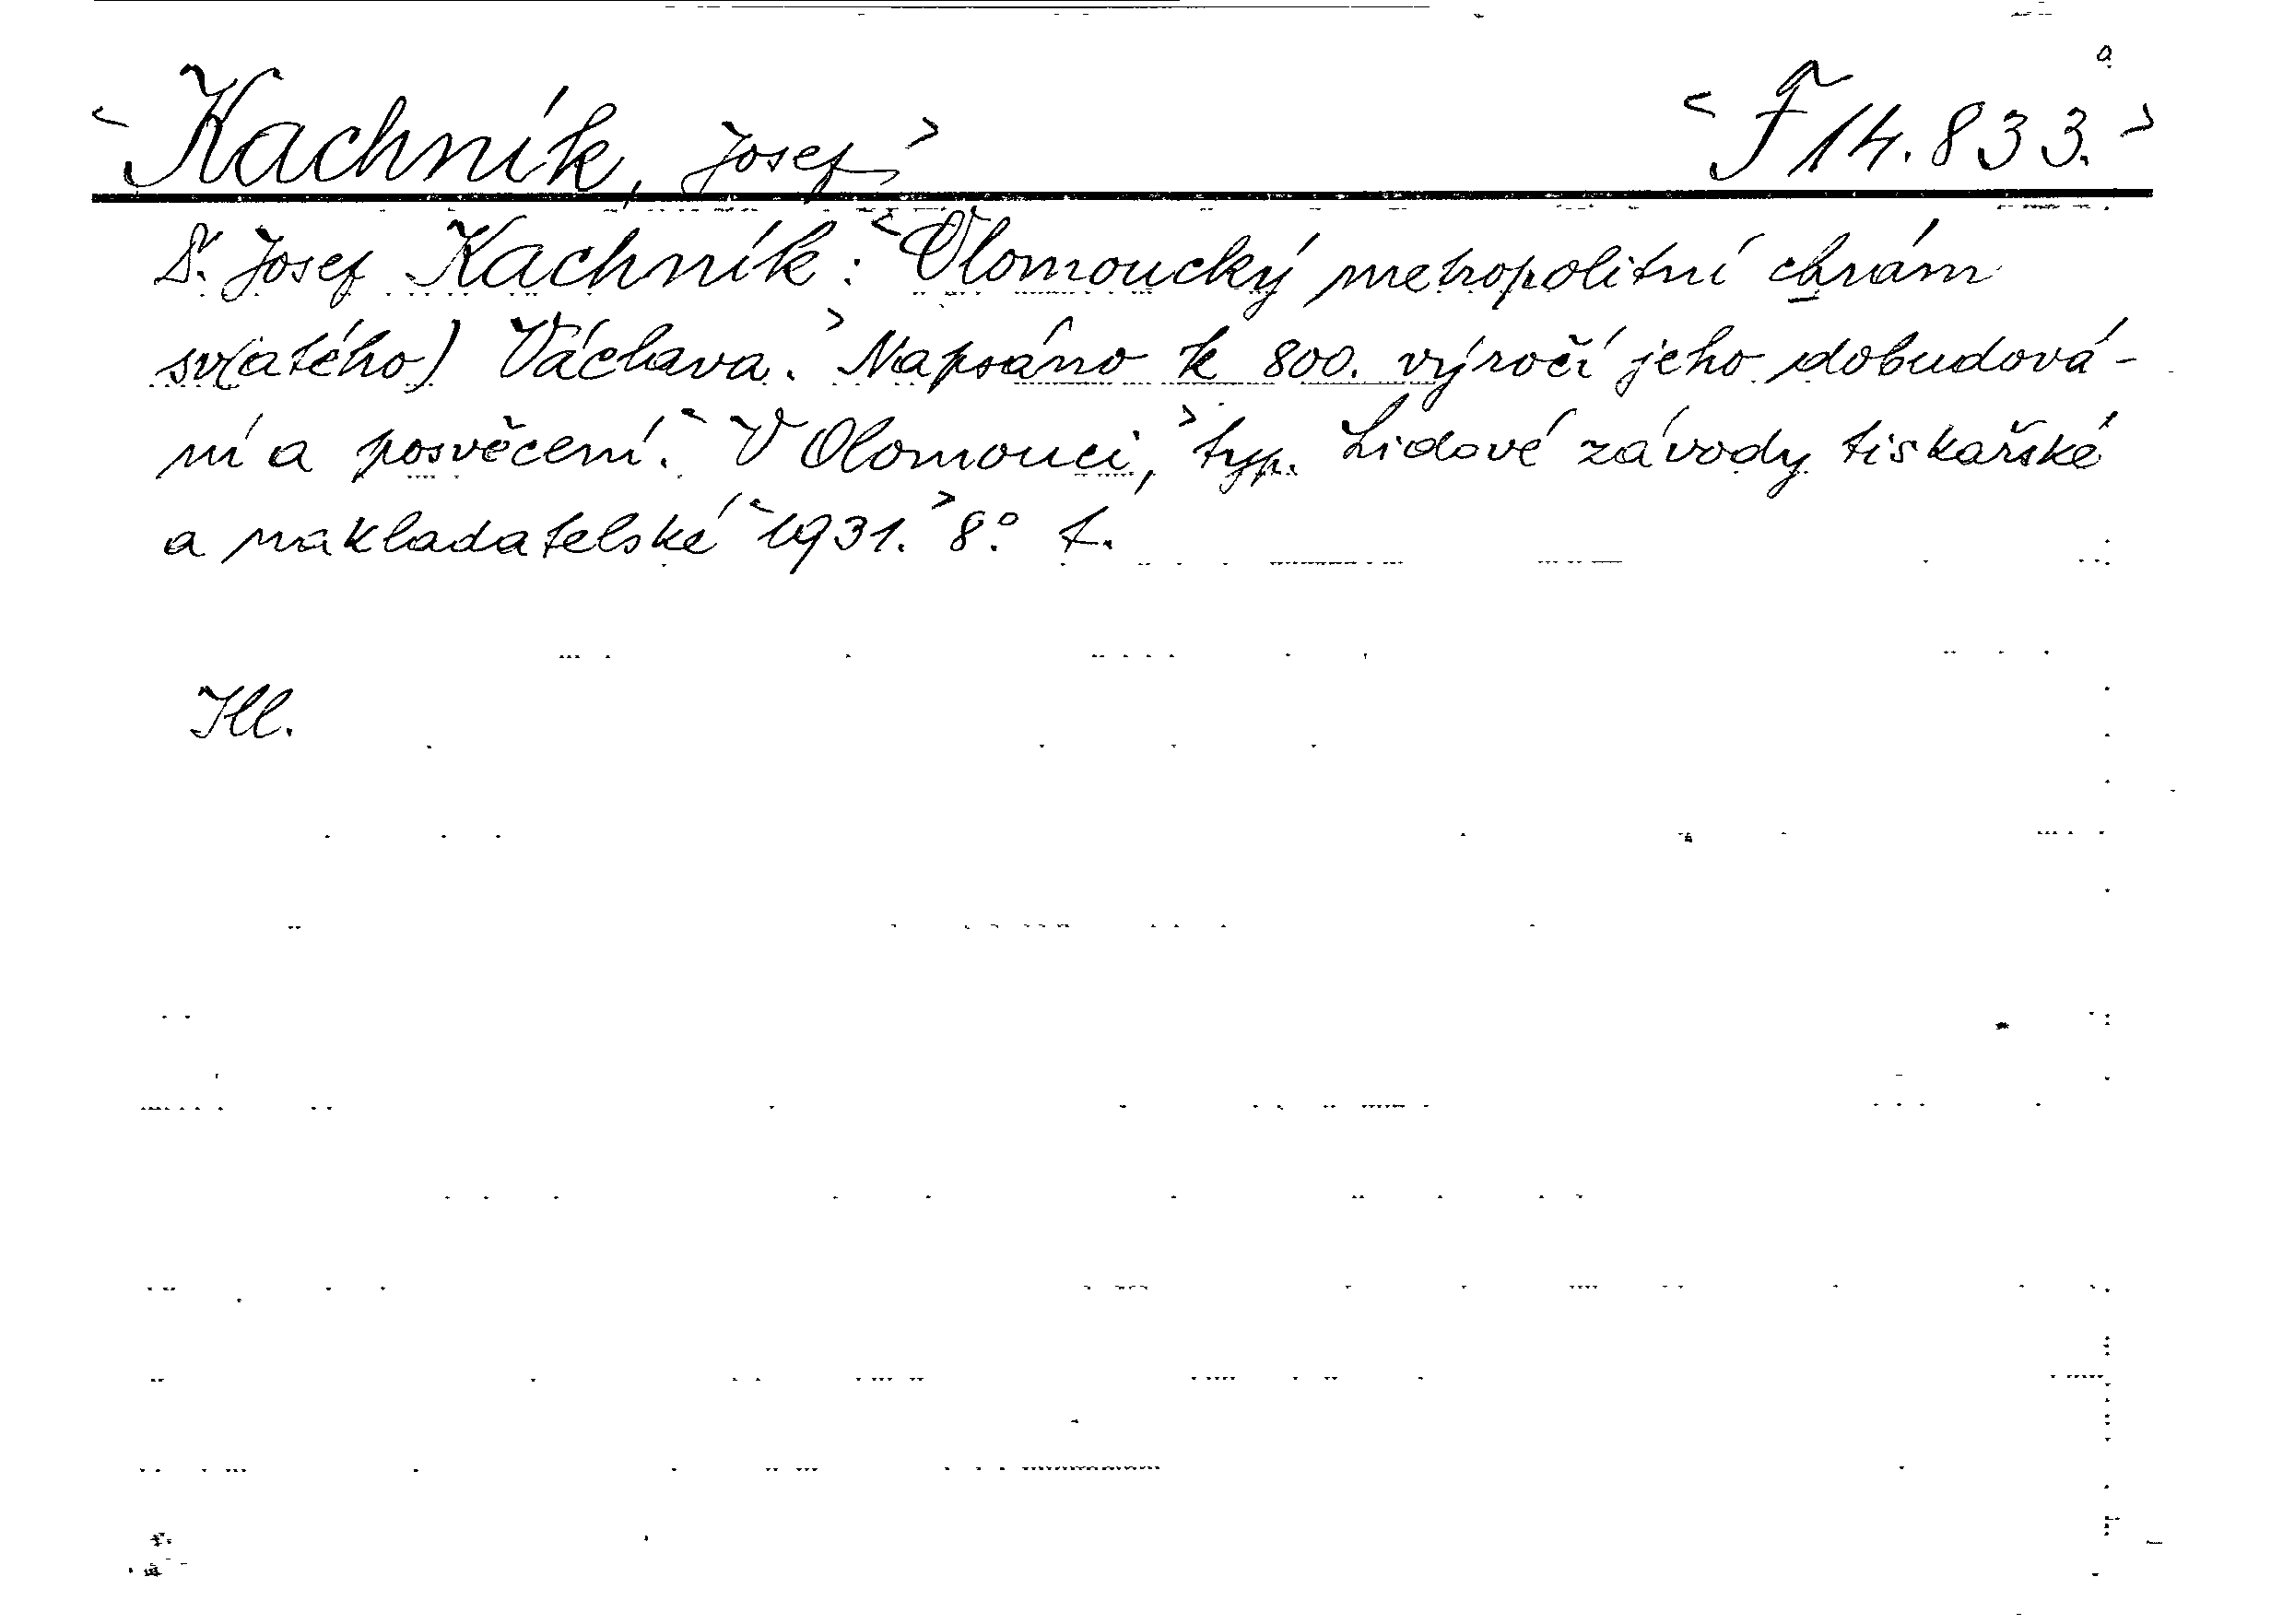 <Kachník, Josef> <F 14.833.>
Dr. Josef Kachník: <Olomoucký metropolitní chrám
sv(atého) Václava.> Napsáno k 800. výročí jeho dobudová-
ní a posvěcení. <V Olomouci,> typ. Lidové závody tiskařské
a nakladatelské <1931.> 8°.
Ill.